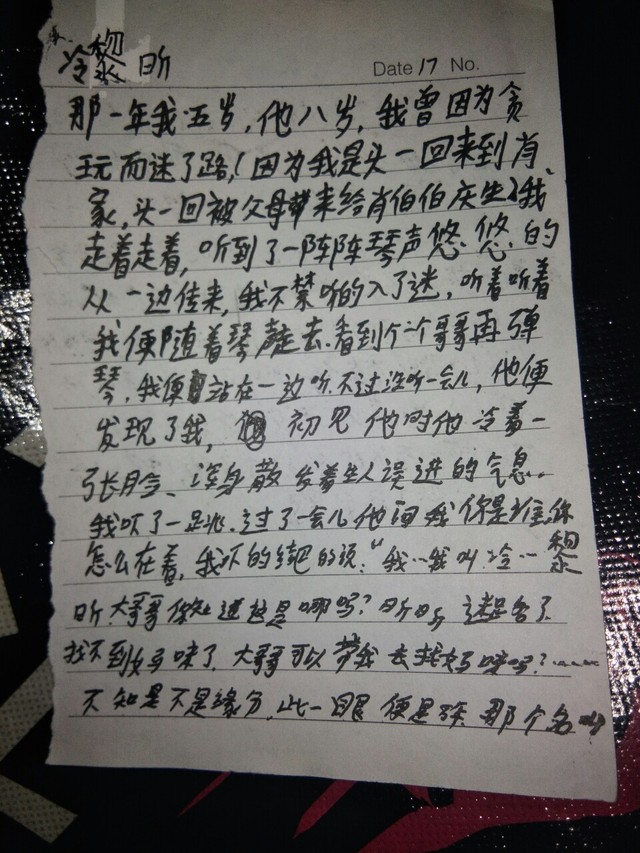 冷黎昕
Date 17 No.
那一年我五岁，他八岁，我曾因为贪
玩而迷了路！因为我是头一回来到肖
家，头一回被父母带来给肖伯伯庆生，我
走着走着，听到了一阵阵琴声悠悠的
从一边传来，我不禁听的入了迷，听着听着
我便随着琴声走去、看到个一个哥哥再弹
琴，我便站在一边听、不过没听一会儿，他便
发现了我，初见他时他冷着一
张脸、浑身散发着生人误进的气息。
我吓了一跳、过了一会儿他问我你是谁，你
怎么在着，我吓的结巴的说：“我…我叫冷…黎
昕、大哥哥你知道这是哪吗？昕昕迷路了、
找不到妈咪了、大哥可以带我去找妈咪吗？……
不知是不是缘分、此一眼便是 那个名叫